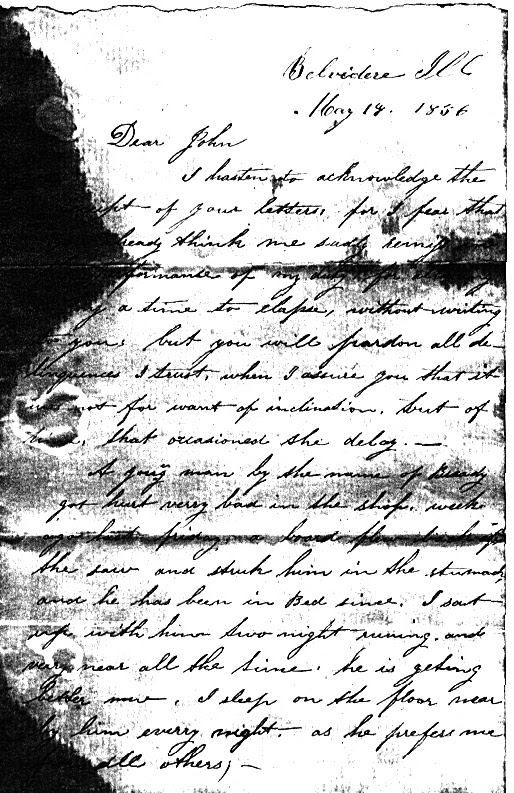 Belvidere Ill
May 18. 1856
Dear John
I hasten to acknowledge the
of your letters, for I fear that
think me sadly
of my duty for
a time to elapse, without writing
you; but you will pardon all de-
I trust, when I assure you that it
was not for want of inclination, but of
that occasioned the delay. —
A young man by the name of
got hurt verry bad in the shop, week
ago last friday, a board
the saw and struk him in the stumach
and he has been in Bed since. I sat
up with him two night runing, and
very near all the time. he is geting
better now. I sleep on the floor near
by him everry night. as he prefers me
all others; —